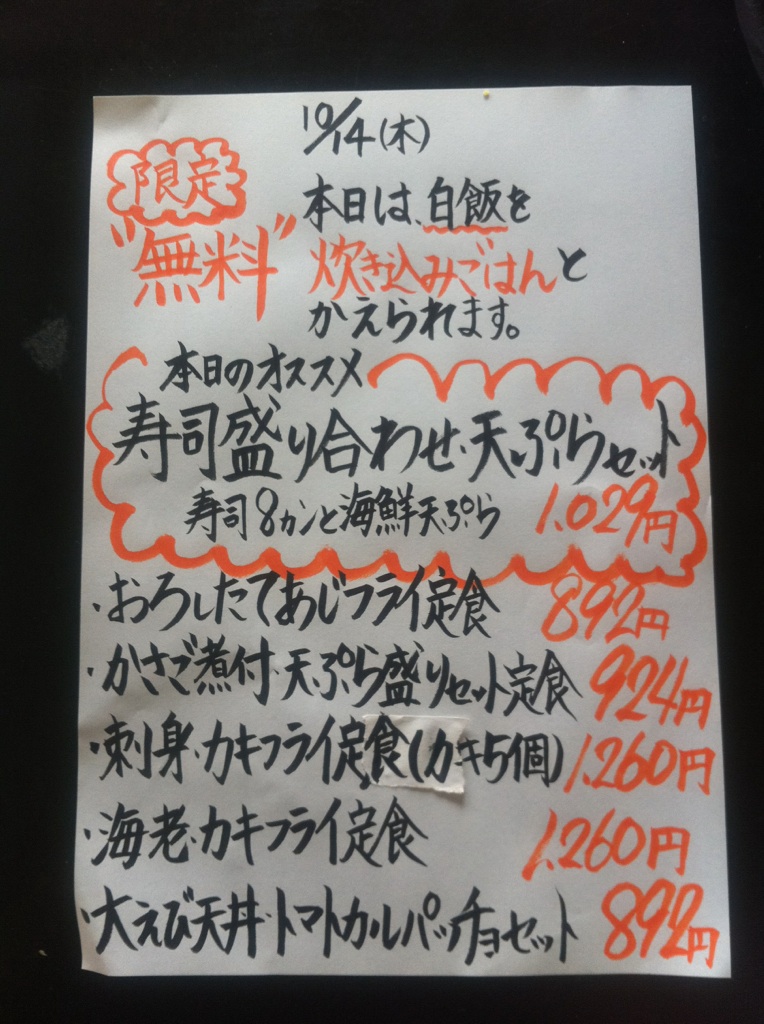 10/14(木)
限定
"無料"
本日は、白飯を
炊き込みごはんと
かえられます。
本日のオススメ
寿司盛り合わせ・天ぷらセット
寿司8カンと海鮮天ぷら 1.029円
・おろしたてあじフライ定食 892円
・かさご煮付・天ぷら盛りセット定食 924円
・刺身・カキフライ定食(カキ5個) 1.260円
・海老・カキフライ定食 1.260円
・大えび天丼・トマトカルパッチョセット 892円